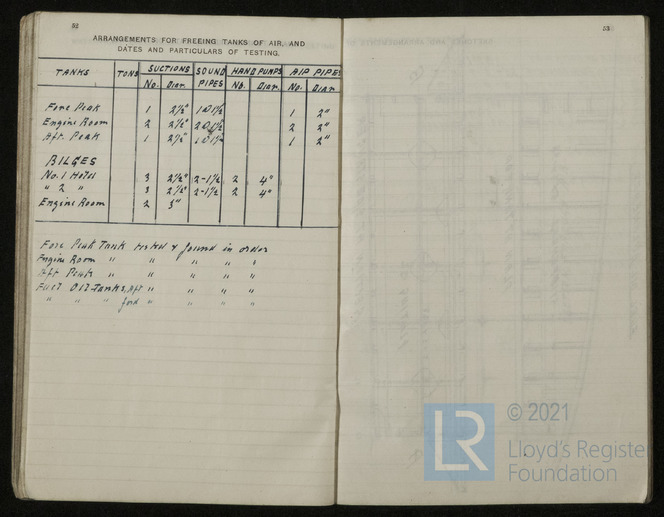 52
ARRANGEMENTS FOR FREEING TANKS OF AIR, AND
DATES AND PARTICULARS OF TESTING.
TANKS TONS SUCTIONS SOUND PIPES HAND PUMPS AIP PIPES
No. Diar. No. Diar. No. Diar
Fore Peak 1 2½" 1 @ 1½" 1 2"
Engine Room 2 2½" 2 @ 1½" 2 2"
Aft. Peak 1 2½" 1 @ 1½" 1 2"
BILGES
No. 1 Hold 3 2½" 2-1½ 2 4"
" 2 " 3 2½" 2-1½ 2 4"
Engine Room 2 3"
Fore Peak Tank tested & found in order
Engine Room " " " " "
Aft Peak " " " " "
Fuel Oil Tanks, Aft " " " "
" " " ford " " " "
53
LR
© 2021
Lloyd's Registe
Foundation